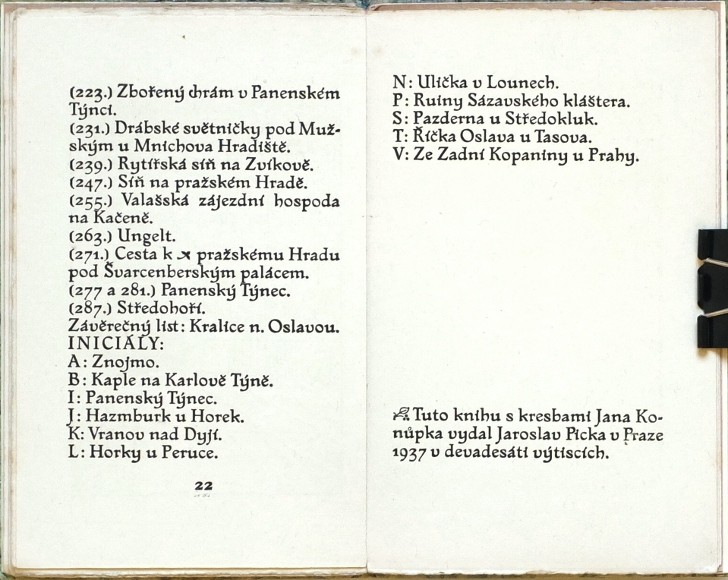 (223.) Zbořený chrám v Panenském
Týnci.
(231.) Drábské světničky pod Muž-
ským u Mnichova Hradiště.
(239.) Rytířská síň na Zvíkově.
(247.) Síň na pražském Hradě.
(255.) Valašská zájezdní hospoda
na Kačeně.
(263.) Ungelt.
(271.) Cesta k pražskému Hradu
pod Švarcenberským palácem.
(277 a 281.) Panenský Týnec.
(287.) Středohoří.
Závěrečný list: Kralice n. Oslavou.
INICIÁLY:
A: Znojmo.
B: Kaple na Karlově Týně.
I: Panenský Týnec.
J: Hazmburk u Horek.
K: Vranov nad Dyjí.
L: Horky u Peruce.
22
N: Ulička v Lounech.
P: Ruiny Sázavského kláštera.
S: Pazderna u Středokluk.
T: Říčka Oslava u Tasova.
V: Ze Zadní Kopaniny u Prahy.
Tuto knihu s kresbami Jana Ko-
nůpka vydal Jaroslav Picka v Praze
1937 v devadesáti výtiscích.